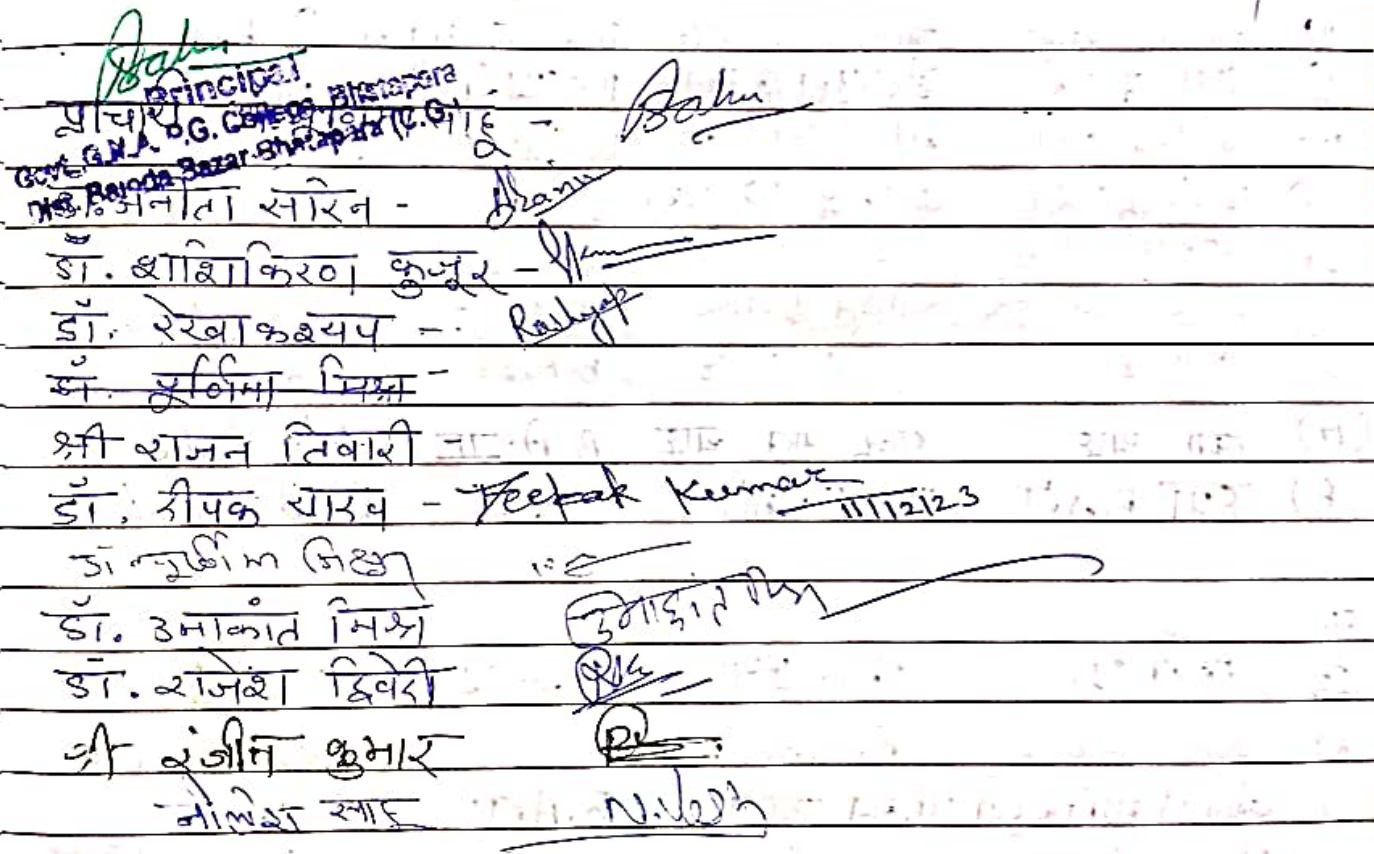 Sahu
Principal
Govt. G.N.A. P.G. College, Bhatapara
Dist. Baloda Bazar-Bhatapara (C.G.)
प्राचार्य साहू - Sahu
डॉ. अनीता सोरेन -
डॉ. शशिकिरण कुजूर -
डॉ. रेखा कश्यप - RKashyap
डॉ. पूर्णिमा मिश्रा -
श्री राजन तिवारी -
डॉ. दीपक यादव - Deepak Kumar
11/12/23
डॉ पूर्णिमा मिश्रा
डॉ. उमाकांत मिश्र उमाकांत मिश्र
डॉ. राजेश द्विवेदी
श्री रंजीत कुमार
नीलेश साहू Nilesh